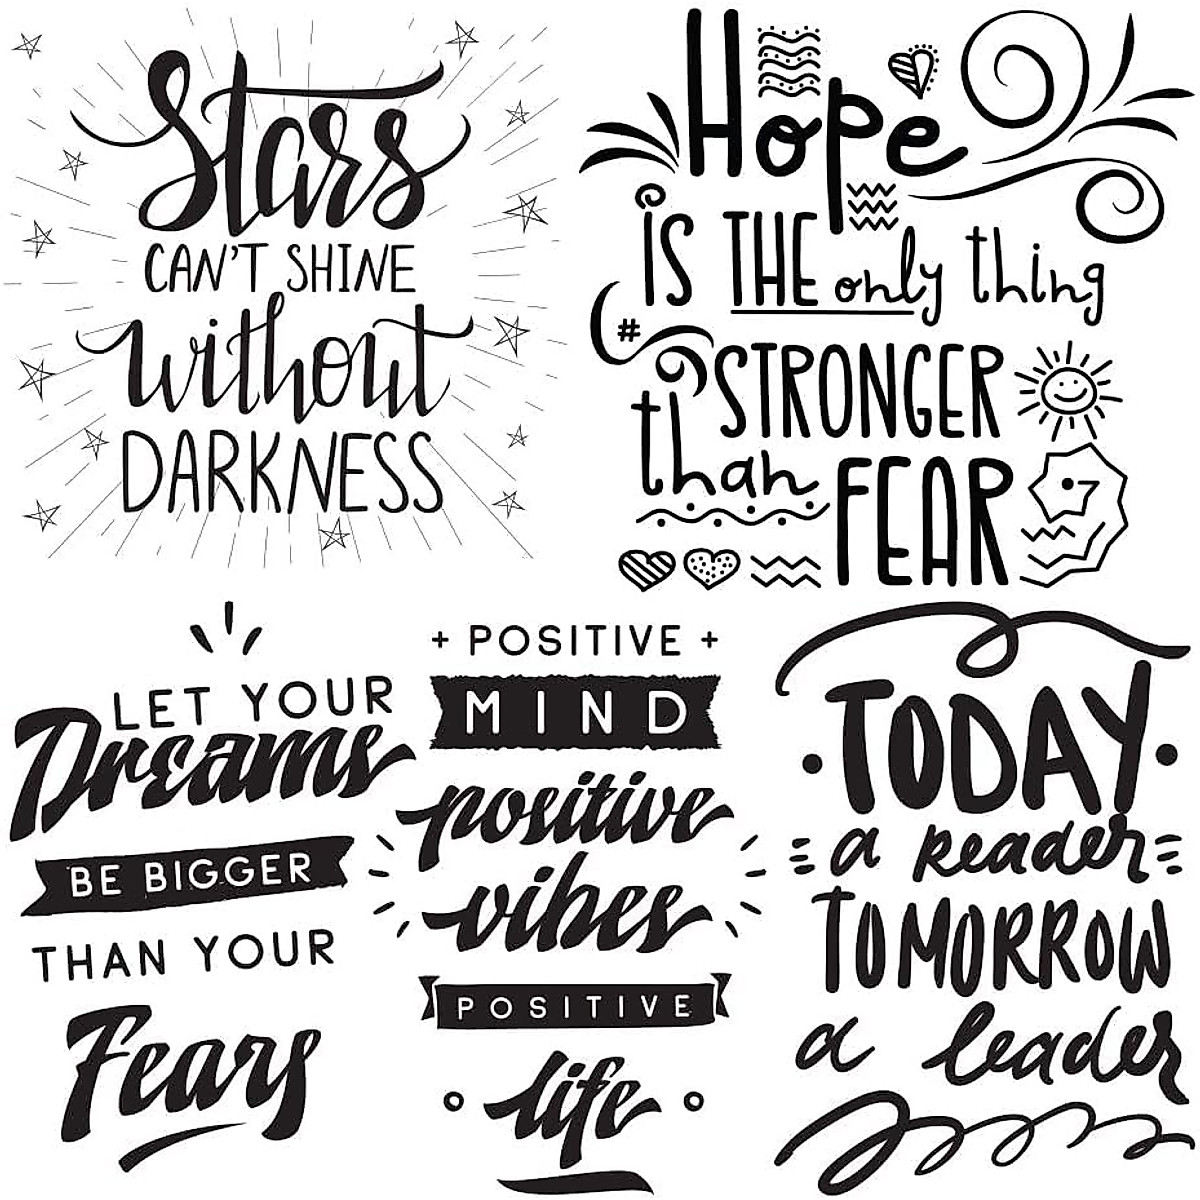 Stars
CAN'T SHINE
without
DARKNESS
Hope
is THE only thing
#
STRONGER
than
FEAR
LET YOUR
Dreams
BE BIGGER
THAN YOUR
Fears
+ POSITIVE +
MIND
positive
vibes
POSITIVE
life
TODAY
a reader
TOMORROW
a leader